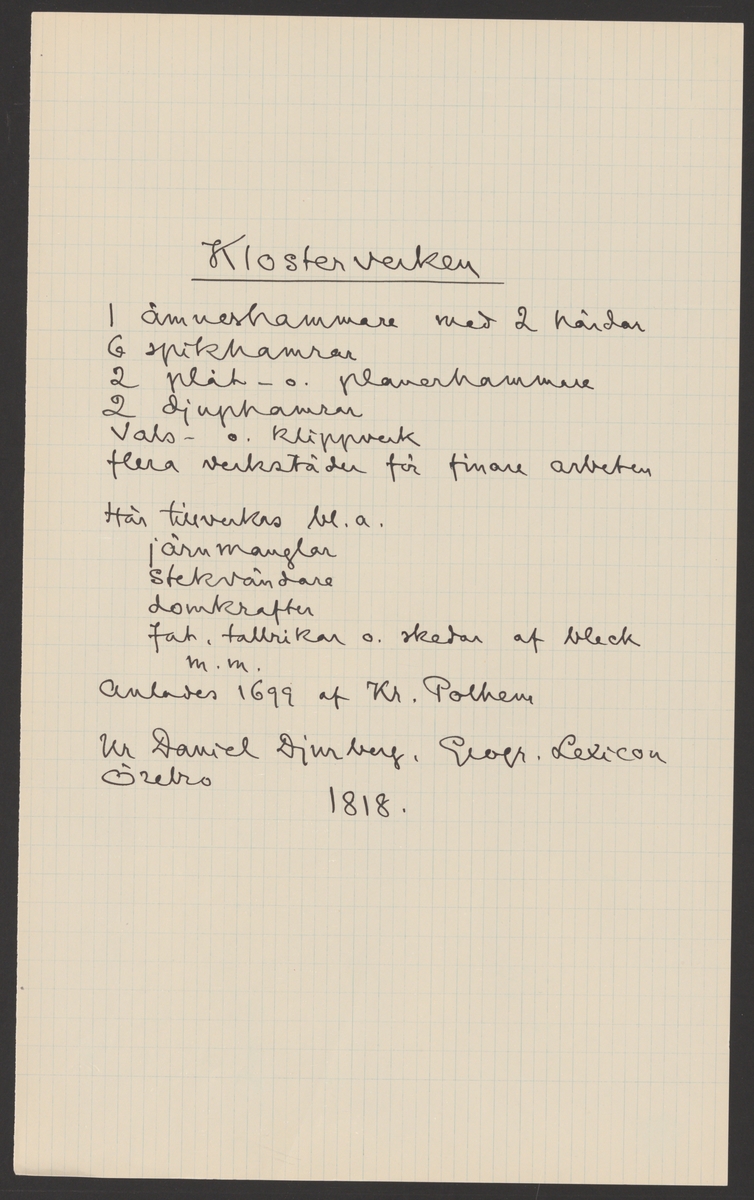 Klosterverken
1 ämneshammare med 2 härdar
6 spikhamrar
2 plåt- o. planerhammare
2 djuphamrar
Vals- o. klippverk
flera verkstäder för finare arbeten
Här tillverkas bl. a.
järnmanglar
stekvändare
domkrafter
fat, tallrikar o. skedar af bleck
m. m.
Anlades 1699 af Kr. Polhem
Ur Daniel Djurberg, Geogr. Lexicon
Örebro
1818.